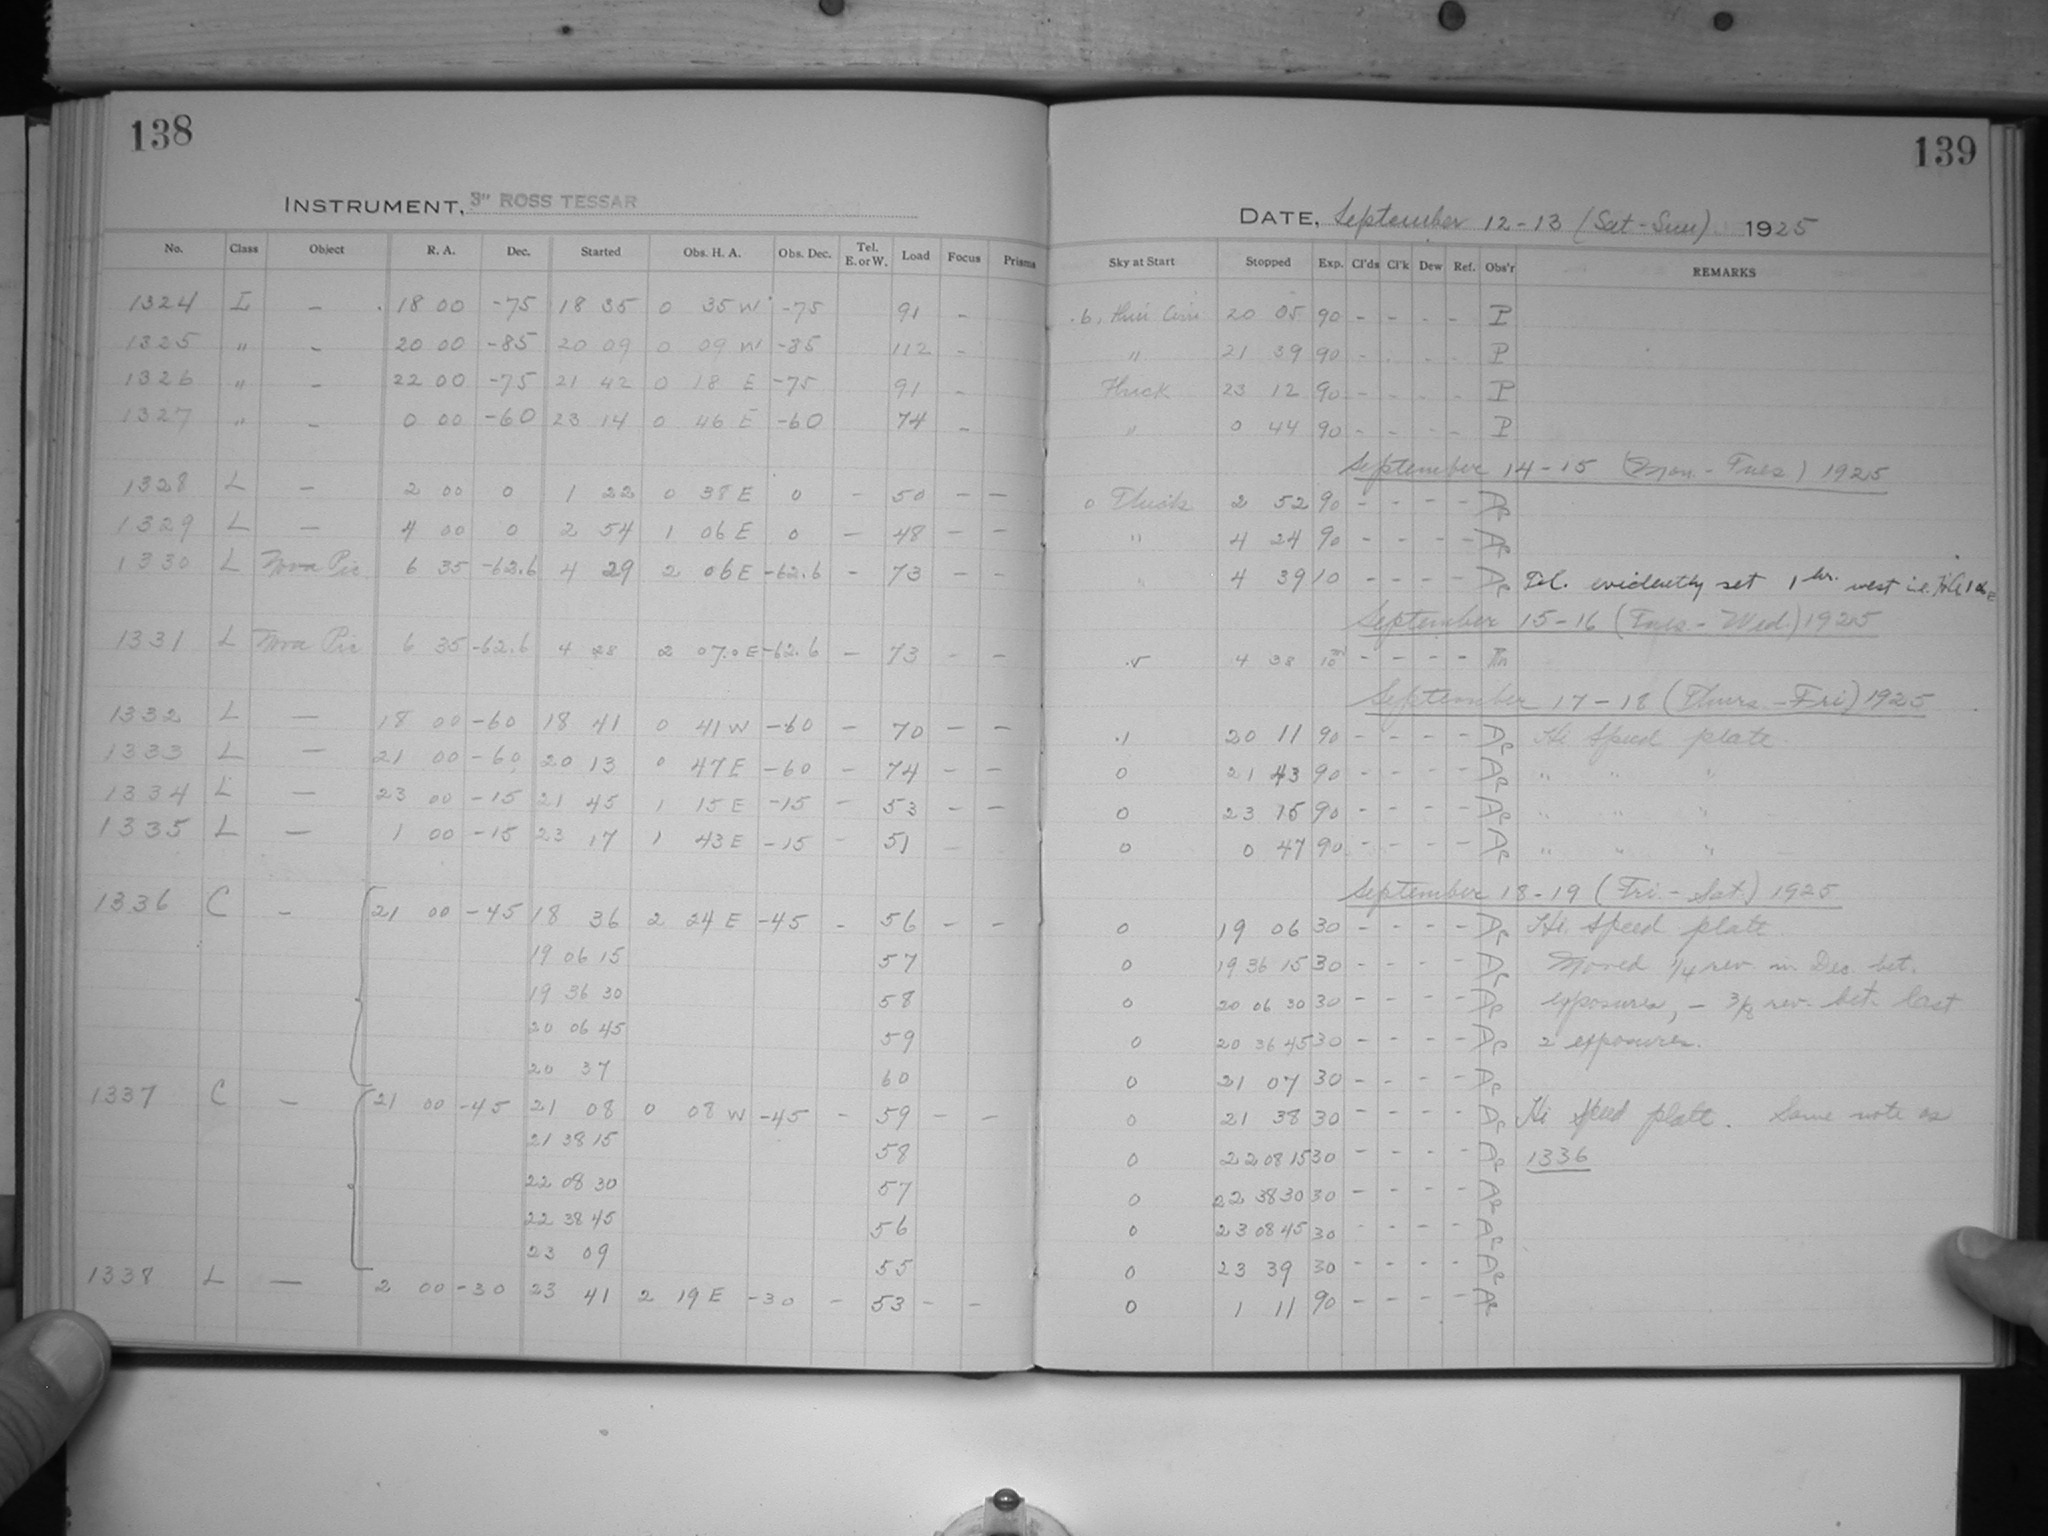 138
INSTRUMENT, 3" ROSS TESSAR
No. Class Object R. A. Dec. Started Obs. H. A. Obs. Dec. Tel. E. or W. Load Focus Prisms
1324 I – 18 00 -75 18 35 0 35 W -75 91 -
1325 " - 20 00 -85 20 09 0 09 W -85 112 -
1326 " - 22 00 -75 21 42 0 18 E -75 91 -
1327 " - 0 00 -60 23 14 0 46 E -60 74 -
1328 L – 2 00 0 1 22 0 38 E 0 - 50 - -
1329 L – 4 00 0 2 54 1 06 E 0 - 48 - -
1330 L Nova Pic. 6 35 -62.6 4 29 2 06 E -62.6 - 73 - -
1331 L Nova Pic 6 35 -62.6 4 28 2 07.0 E -62.6 - 73 - -
1332 L – 18 00 -60 18 41 0 41 W -60 - 70 - -
1333 L – 21 00 -60 20 13 0 47 E -60 - 74 - -
1334 L – 23 00 -15 21 45 1 15 E -15 - 53 - -
1335 L – 1 00 -15 23 17 1 43 E -15 - 51 - -
1336 C - 21 00 -45 18 36 2 24 E -45 - 56 - -
19 06 15 57
19 36 30 58
20 06 45 59
20 37 60
1337 C - 21 00 -45 21 08 0 08 W -45 - 59 - -
21 38 15 58
22 08 30 57
22 38 45 56
23 09 55
1338 L – 2 00 -30 23 41 2 19 E -30 - 53 - -
139
DATE, September 12-13 (Sat-Sun) 1925
Sky at Start Stopped Exp. Cl'ds Cl'k Dew Ref. Obs'r REMARKS
20 05 90 - - - - P
" 21 39 90 - - - - P
Thick 23 12 90 - - - - P
" 0 44 90 - - - - P
September 14-15 (Mon.-Tues) 1925
0 2 52 90 - - - -
" 4 24 90 - - - -
" 4 39 10 - - - - Tel. evidently set 1 hr. west i.e.
September 15-16 (Tues.-Wed.) 1925
.5 4 38 10m - - - -
September 17-18 (Thurs-Fri) 1925
.1 20 11 90 - - - - Hi Speed plate
0 21 43 90 - - - - " " "
0 23 15 90 - - - - " " "
0 0 47 90 - - - - " " "
September 18-19 (Fri-Sat) 1925
0 19 06 30 - - - - Hi Speed plate
0 19 36 15 30 - - - - Moved 1/4 rev in Dec. bet.
0 20 06 30 30 - - - - exposures, – 3/8 rev. bet. last
0 20 36 45 30 - - - - 2 exposures.
0 21 07 30 - - - -
0 21 38 30 - - - - Hi Speed plate. Same note as
0 22 08 15 30 - - - - 1336
0 22 38 30 30 - - - -
0 23 08 45 30 - - - -
0 23 39 30 - - - -
0 1 11 90 - - - -